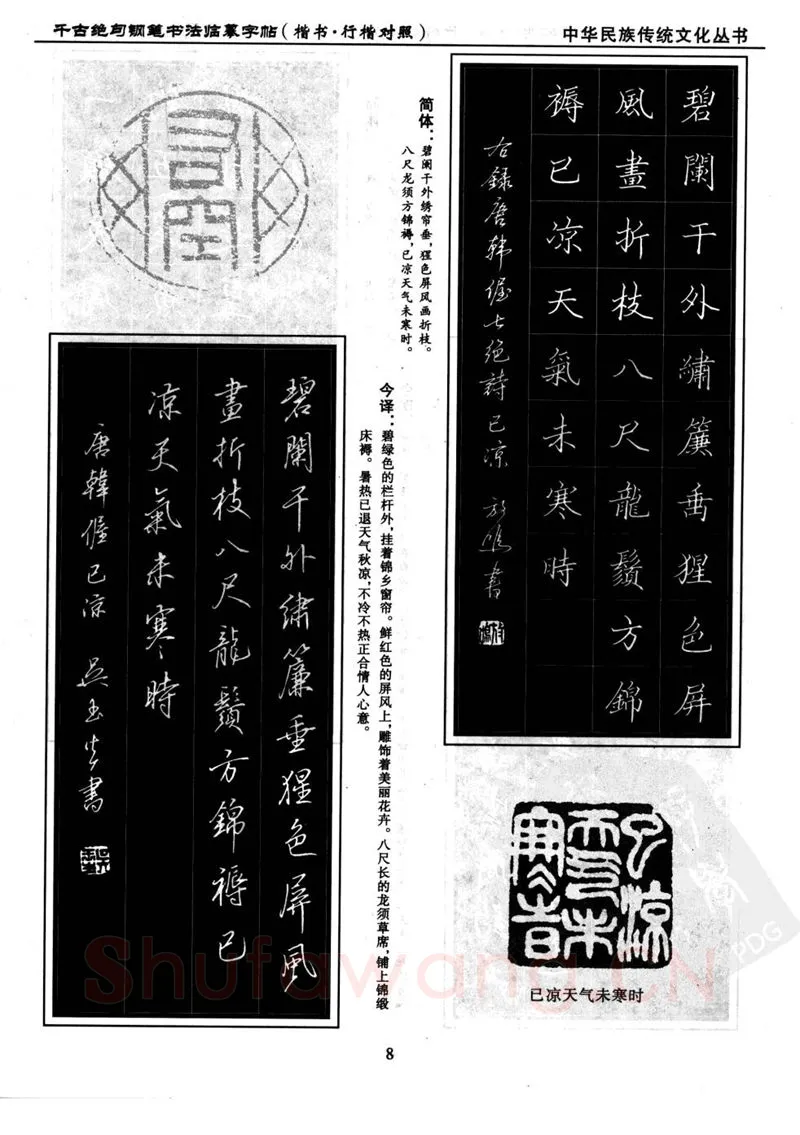 千古绝句钢笔书法临摹字帖(楷书·行楷对照)
中华民族传统文化丛书
碧闌干外繡簾垂猩色屏
風畫折枝八尺龍鬚方錦
褥已凉天氣未寒時
右錄唐韓偓七绝詩已凉 書
简体：碧阑干外绣帘垂，猩色屏风画折枝。
八尺龙须方锦褥，已凉天气未寒时。
今译：碧绿色的栏杆外，挂着锦乡窗帘。鲜红色的屏风上，雕饰着美丽花卉。八尺长的龙须草席，铺上锦缎
床褥。暑热已退天气秋凉，不冷不热正合情人心意。
司空
碧闌干外繡簾垂猩色屏風
畫折枝八尺龍鬚方錦褥已
凉天氣未寒時
唐韓偓已凉 吴玉生書
已凉天气未寒时
8
Shufawang.CN
PDG